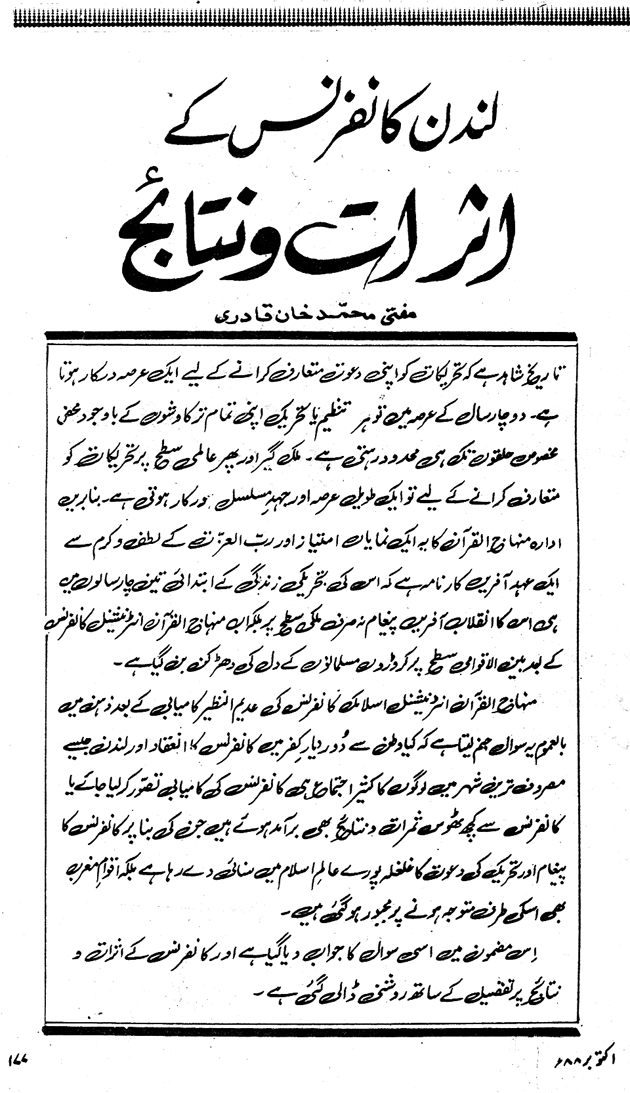 لندن کانفرنس کے
اثرات و نتائج
مفتی محمّد خان قادری
تاریخ شاہد ہے کہ تحریکات کو اپنی دعوت متعارف کرانے کے لیے ایک عرصہ درکار ہوتا
ہے۔ دو چار سال کے عرصہ میں تو ہر تنظیم یا تحریک اپنی تمام تر کاوشوں کے باوجود محض
مخصوص حلقوں تک ہی محدود رہتی ہے۔ ملک گیر اور پھر عالمی سطح پر تحریکات کو
متعارف کرانے کے لیے تو ایک طویل عرصہ اور جہدِ مسلسل درکار ہوتی ہے۔ بنابریں
ادارہ منہاج القرآن کا یہ ایک نمایاں امتیاز اور ربّ العزّت کے لطف و کرم سے
ایک عہد آفریں کارنامہ ہے کہ اس کی تحریکی زندگی کے ابتدائی تین چار سالوں میں
ہی اس کا انقلاب آفریں پیغام نہ صرف ملکی سطح پر بلکہ اب منہاج القرآن انٹرنیشنل کانفرنس
کے بعد بین الاقوامی سطح پر کروڑوں مسلمانوں کے دل کی دھڑکن بن گیا ہے۔
منہاج القرآن انٹرنیشنل اسلامک کانفرنس کی عدیم النظیر کامیابی کے بعد ذہن میں
بالعموم یہ سوال جنم لیتا ہے کہ کیا وطن سے دُور دیارِ کفر میں کانفرنس کا انعقاد اور لندن جیسے
مصروف ترین شہر میں لوگوں کا کثیر اجتماع ہی کانفرنس کی کامیابی تصوّر کر لیا جائے یا
کانفرنس سے کچھ ٹھوس ثمرات و نتائج بھی برآمد ہوئے ہیں جن کی بنا پر کانفرنس کا
پیغام اور تحریک کی دعوت کا غلغلہ پورے عالمِ اسلام میں سنائی دے رہا ہے بلکہ اقوامِ مغرب
بھی اسکی طرف متوجہ ہونے پر مجبور ہو گئی ہیں۔
اِس مضمون میں اسی سوال کا جواب دیا گیا ہے اور کانفرنس کے اثرات و
نتائج پر تفصیل کے ساتھ روشنی ڈالی گئی ہے۔
اکتوبر ۸۸ء
۱۷۷